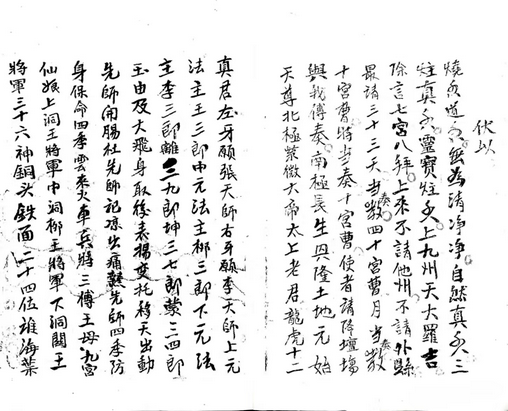 伏以
燒香道香無為清淨淨自然真香三
炷真香靈寶炷香上九州天大羅吉
除言七宮八拜上來不請他州不請外縣
最請三十三天當奏四十宮曹月當奏
十宮曹將當奏十宮曹使者請降壇場
與我傳奏南極長生興隆土地元始
天尊北極紫微大帝太上老君龍虎十二
真君左牙願張天師右牙願李天師上元
法主王三郎中元法主柳三郎下元法
主李三郎離三九郎坤三七郎蒙三四郎
玉由及大飛身取後表揚變托移天出動
先師開腸杜先師記凉出痛先師四季防
身保命四季雲來火車兵將三博王母九宮
仙娘上洞王將軍中洞柳王將軍下洞関王
將軍三十六神銅头鉄面二十四位雄海葉